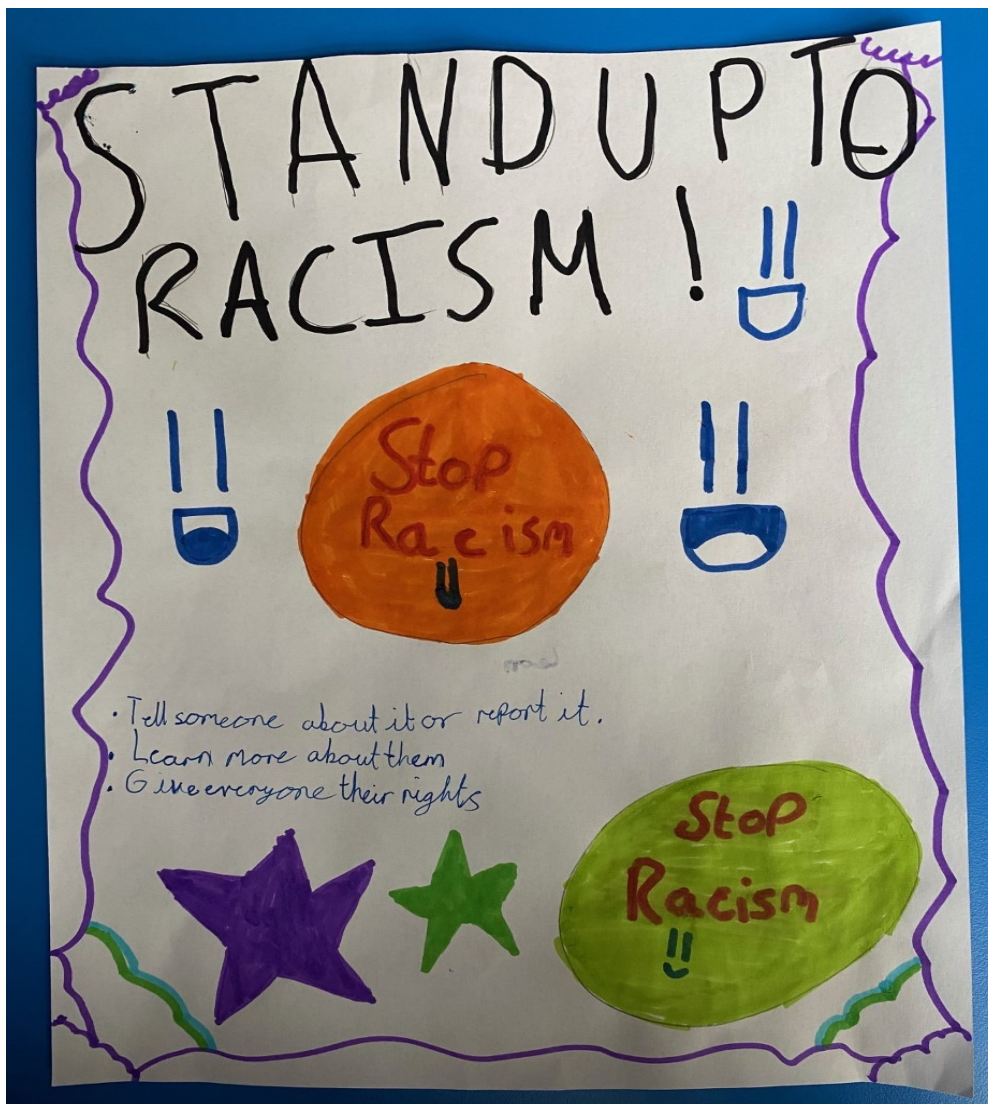 STAND UP TO
RACISM!
Stop
Racism
· Tell someone about it or report it.
· Learn more about them
· Give everyone their rights
Stop
Racism